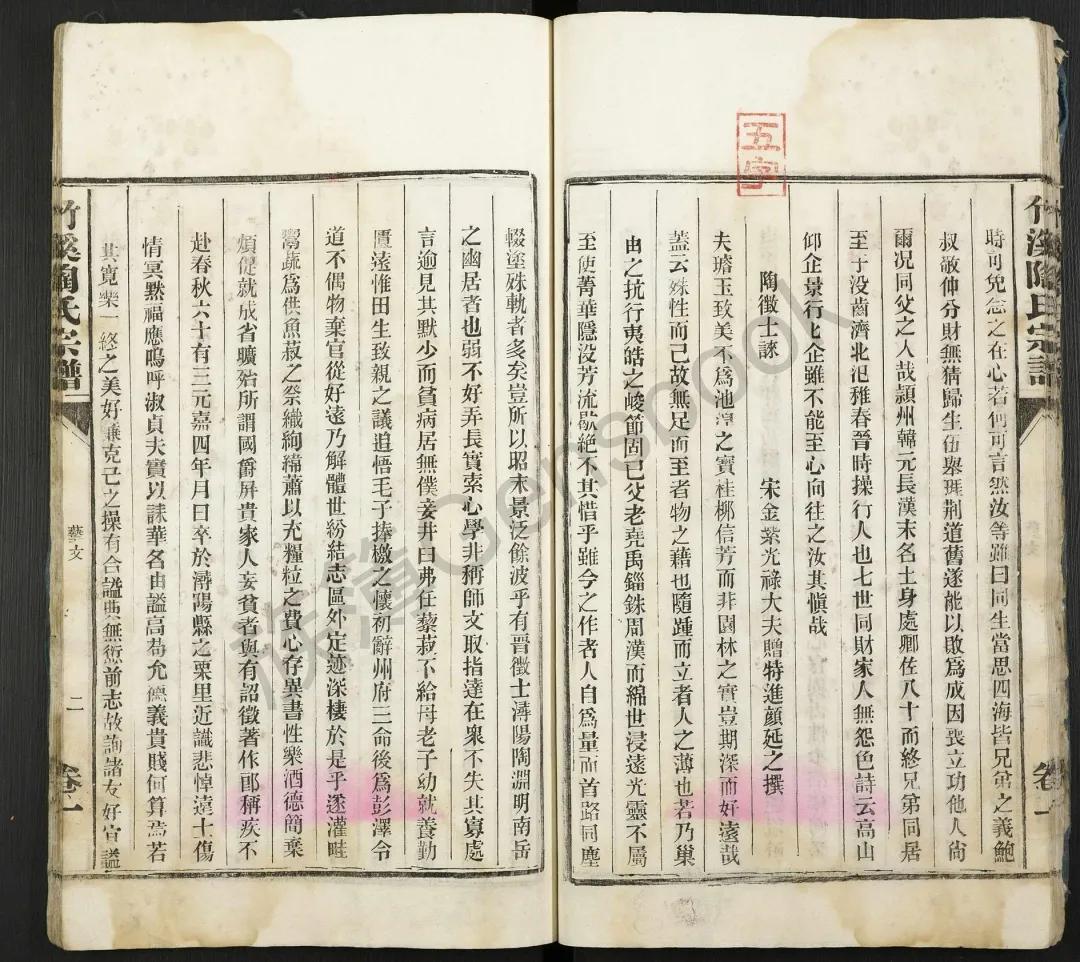 竹溪陶氏宗譜
卷一
五字
時可免怠之在心若何可言然汝等雖曰同生當思四海皆兄弟之義鮑
叔敬仲分財無猜歸生伍舉班荆道舊遂能以敗爲成因喪立功他人尙
爾况同父之人哉頴州韓元長漢末名士身處卿佐八十而終兄弟同居
至于没齒濟北氾稚春晉時操行人也七世同財家人無怨色詩云高山
仰企景行止企雖不能至心向往之汝其愼哉
陶徵士誄
宋金紫光祿大夫贈特進顏延之撰
夫璿玉致美不爲池湟之寶桂椒信芳而非園林之實豈期深而好遠哉
蓋云殊性而已故無足而至者物之藉也隨踵而立者人之薄也若乃巢
由之抗行夷皓之峻節固已父老堯禹錙銖周漢而綿世浸遠光靈不屬
至使菁華隱没芳流歇絶不其惜乎雖今之作者人自爲量而首路同塵
輟塗殊軌者多矣豈所以昭末景泛餘波乎有晉徵士潯陽陶淵明南岳
之幽居者也弱不好弄長實素心學非稱師文取指達在衆不失其寡處
言逾見其默少而貧病居無僕妾井臼弗任藜菽不給母老子幼就養勤
匱遠惟田生致親之議追悟毛子捧檄之懷初辭州府三命後爲彭澤令
道不偶物棄官從好遠乃解體世紛結志區外定迹深棲於是乎遂灌畦
鬻蔬爲供魚菽之祭織絇緯蕭以充糧粒之費心存異書性樂酒德簡棄
煩促就成省曠殆所謂國爵屏貴家人妄貧者與有詔徵著作郎稱疾不
赴春秋六十有三元嘉四年月日卒於潯陽縣之栗里近識悲悼遠士傷
情冥默福應嗚呼淑貞夫實以誄華名由謚高苟允德義貴賤何算焉若
其寛樂令終之美好廉克己之操有合謚典無愆前志故詢諸友好宜謚
竹溪陶氏宗譜
藝文
二
卷一